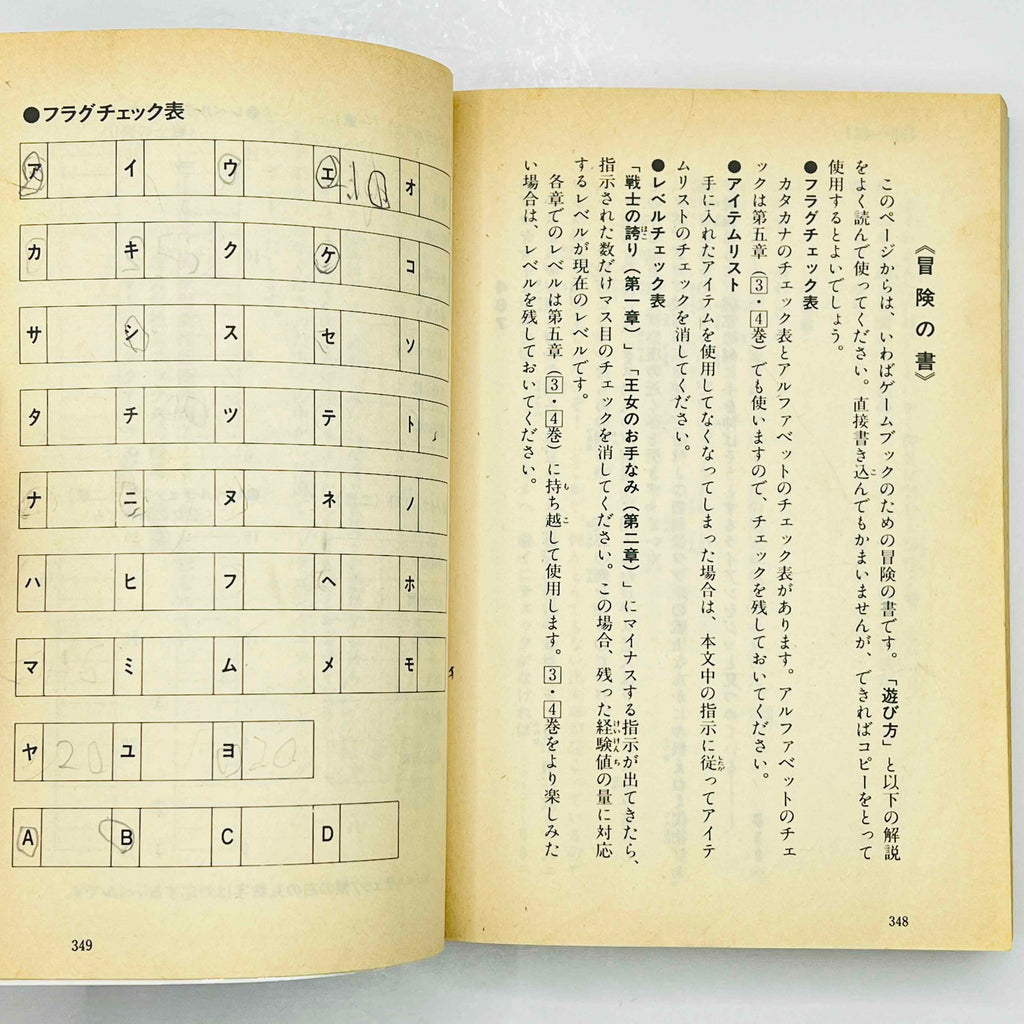 《冒険の書》
このページからは、いわばゲームブックのための冒険の書です。「遊び方」と以下の解説
をよく読んで使ってください。直接書き込んでもかまいませんが、できればコピーをとって
使用するとよいでしょう。
●フラグチェック表
カタカナのチェック表とアルファベットのチェック表があります。アルファベットのチェ
ックは第五章（3・4巻）でも使いますので、チェックを残しておいてください。
●アイテムリスト
手に入れたアイテムを使用してなくなってしまった場合は、本文中の指示に従ってアイテ
ムリストのチェックを消してください。
●レベルチェック表
「戦士の誇り（第一章）」「王女のお手なみ（第二章）」にマイナスする指示が出てきたら、
指示された数だけマス目のチェックを消してください。この場合、残った経験値の量に対応
するレベルが現在のレベルです。
各章でのレベルは第五章（3・4巻）に持ち越して使用します。3・4巻をより楽しみた
い場合は、レベルを残しておいてください。
348
●フラグチェック表
ア イ ウ エ オ
カ キ ク ケ コ
サ シ ス セ ソ
タ チ ツ テ ト
ナ ニ ヌ ネ ノ
ハ ヒ フ ヘ ホ
マ ミ ム メ モ
ヤ 20 ユ ヨ 20
A B C D
349